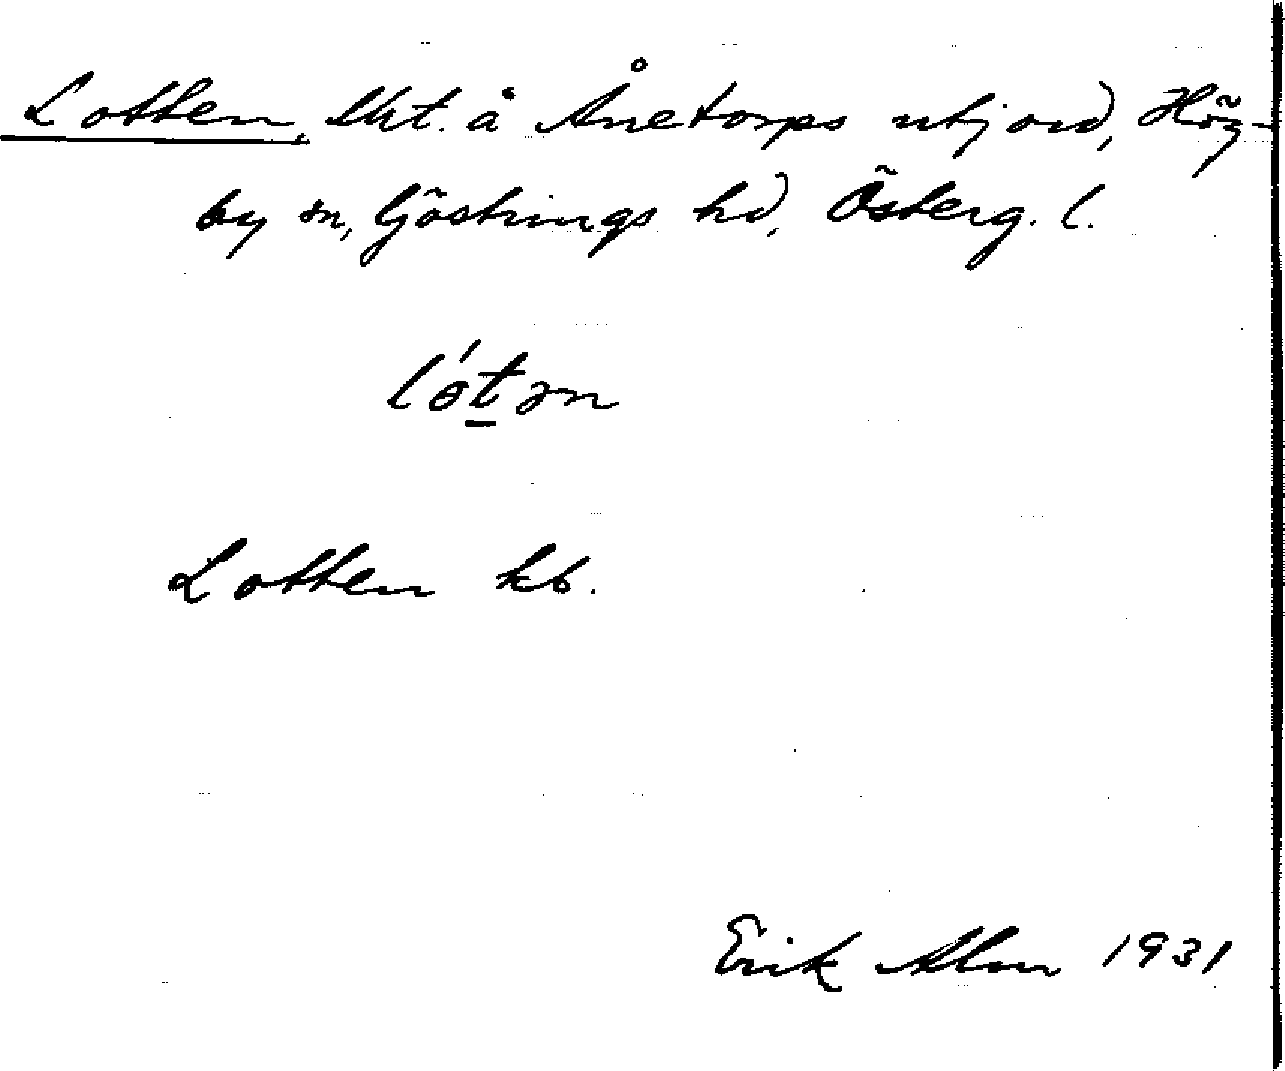 Lotten, lht. å Ånetorps utjord, Hög-
by sn, Göstrings hd, Österg. l.
lót̲ən
Lotten kb.
Erik Alm 1931